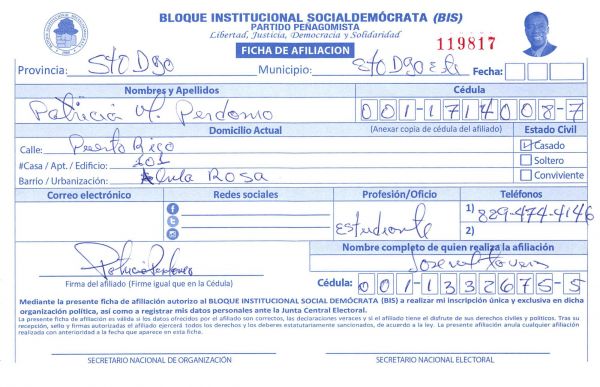 BLOQUE INSTITUCIONAL SOCIALDEMÓCRATA (BIS)
PARTIDO PEÑAGOMISTA
Libertad, Justicia, Democracia y Solidaridad
FICHA DE AFILIACION
119817
Provincia: Sto Dgo Municipio: Sto Dgo Este Fecha:
Nombres y Apellidos Cédula
Patricia M. Perdomo 001-1714008-7
Domicilio Actual (Anexar copia de cédula del afiliado) Estado Civil
Calle: Puerto Rico Casado
#Casa / Apt. / Edificio: 101 Soltero
Barrio / Urbanización: Alma Rosa Conviviente
Correo electrónico Redes sociales Profesión/Oficio Teléfonos
Estudiante 1) 829-474-4146
2)
Nombre completo de quien realiza la afiliación
Patricia Perdomo
Firma del afiliado (Firme igual que en la Cédula) Cédula: 001-1332675-5
Mediante la presente ficha de afiliación autorizo al BLOQUE INSTITUCIONAL SOCIAL DEMÓCRATA (BIS) a realizar mi inscripción única y exclusiva en dicha
organización política, así como a registrar mis datos personales ante la Junta Central Electoral.
La presente ficha de afiliación es válida si los datos ofrecidos por el afiliado son correctos, las declaraciones veraces y si el afiliado tiene el disfrute de sus derechos civiles y políticos. Tras su
recepción, sello y firmas autorizadas el afiliado ejercerá todos los derechos y los deberes estatutariamente sancionados, de acuerdo a la ley. La presente afiliación anula cualquier afiliación
realizada con anterioridad a la fecha que aparece en esta ficha.
SECRETARIO NACIONAL DE ORGANIZACIÓN SECRETARIO NACIONAL ELECTORAL